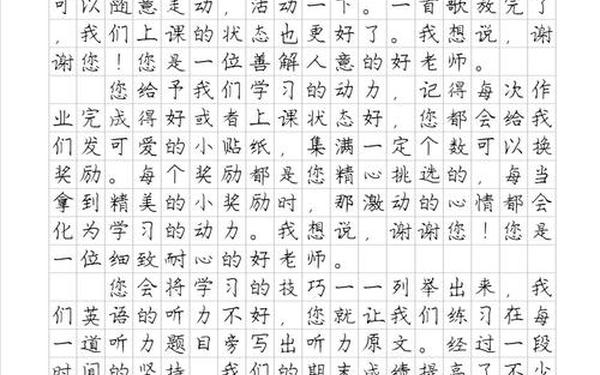 可以随意走动，活动一下。一首歌放完了
，我们上课的状态也更好了。我想说，谢
谢您！您是一位善解人意的好老师。
您给予我们学习的动力，记得每次作
业完成得好或者上课状态好，您都会给我
们发可爱的小贴纸，集满一定个数可以换
奖励。每个奖励都是您精心挑选的，每当
拿到精美的小奖励时，那激动的心情都会
化为学习的动力。我想说，谢谢您！您是
一位细致耐心的好老师。
您会将学习的技巧一一列举出来，我
们英语的听力不好，您就让我们练习在每
一道听力题目旁写出听力原文。经过一段
时间的坚持，我们的期末成绩提高了不少